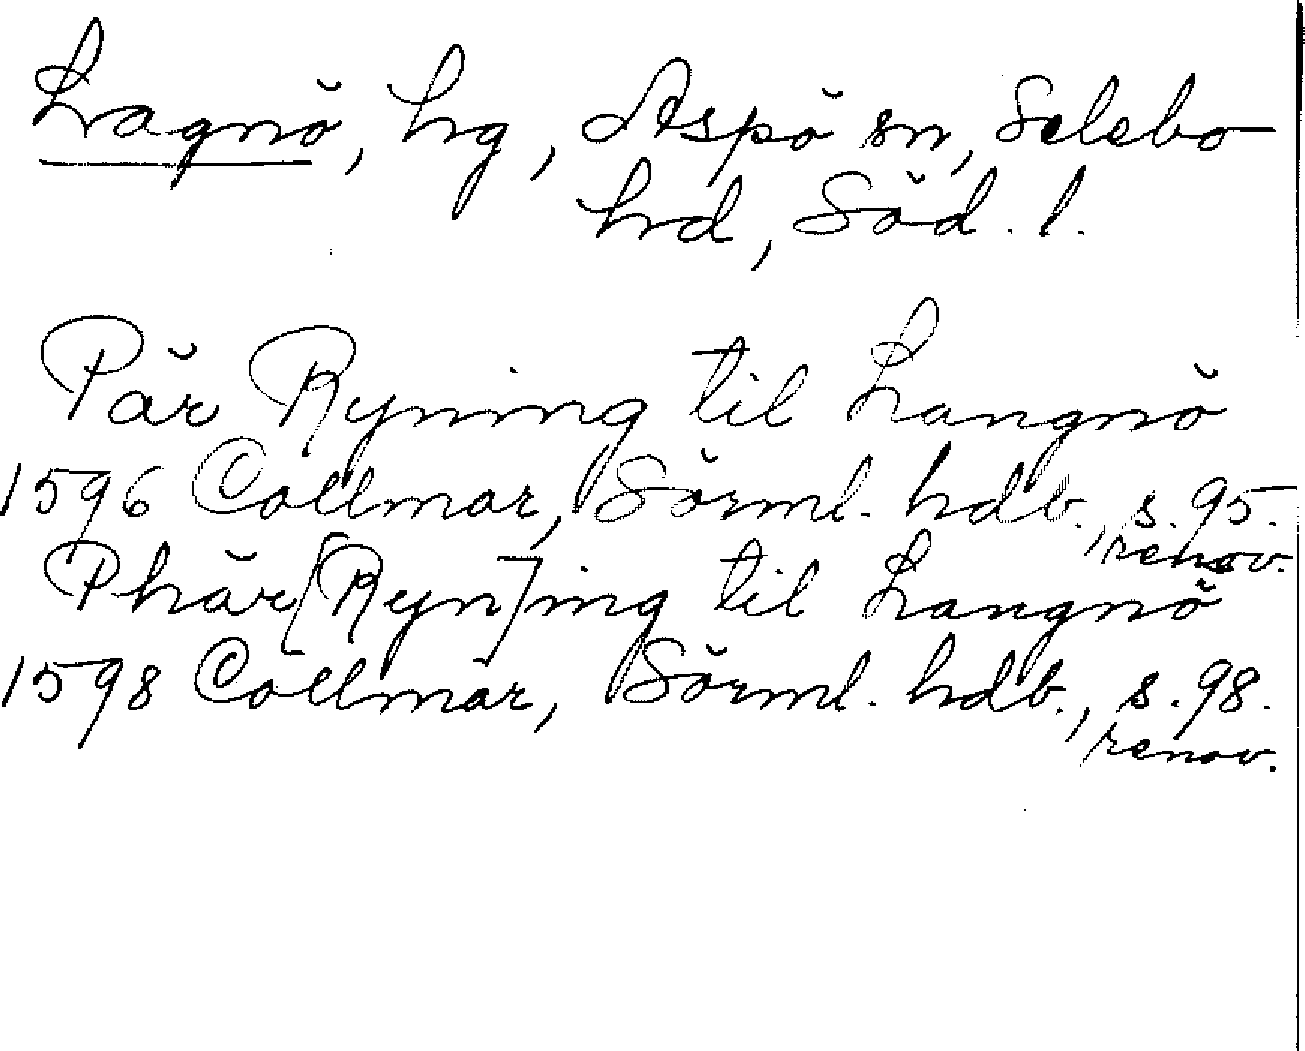 Lagnö, hg, Aspö sn, Selebo
hd, Söd. l.
Pär Ryning til Langnö
1596 Collmar, Sörml. hdb., s. 95.
renov.
Phär [Ryn]ing til Langnö
1598 Collmar, Sörml. hdb., s. 98.
renov.